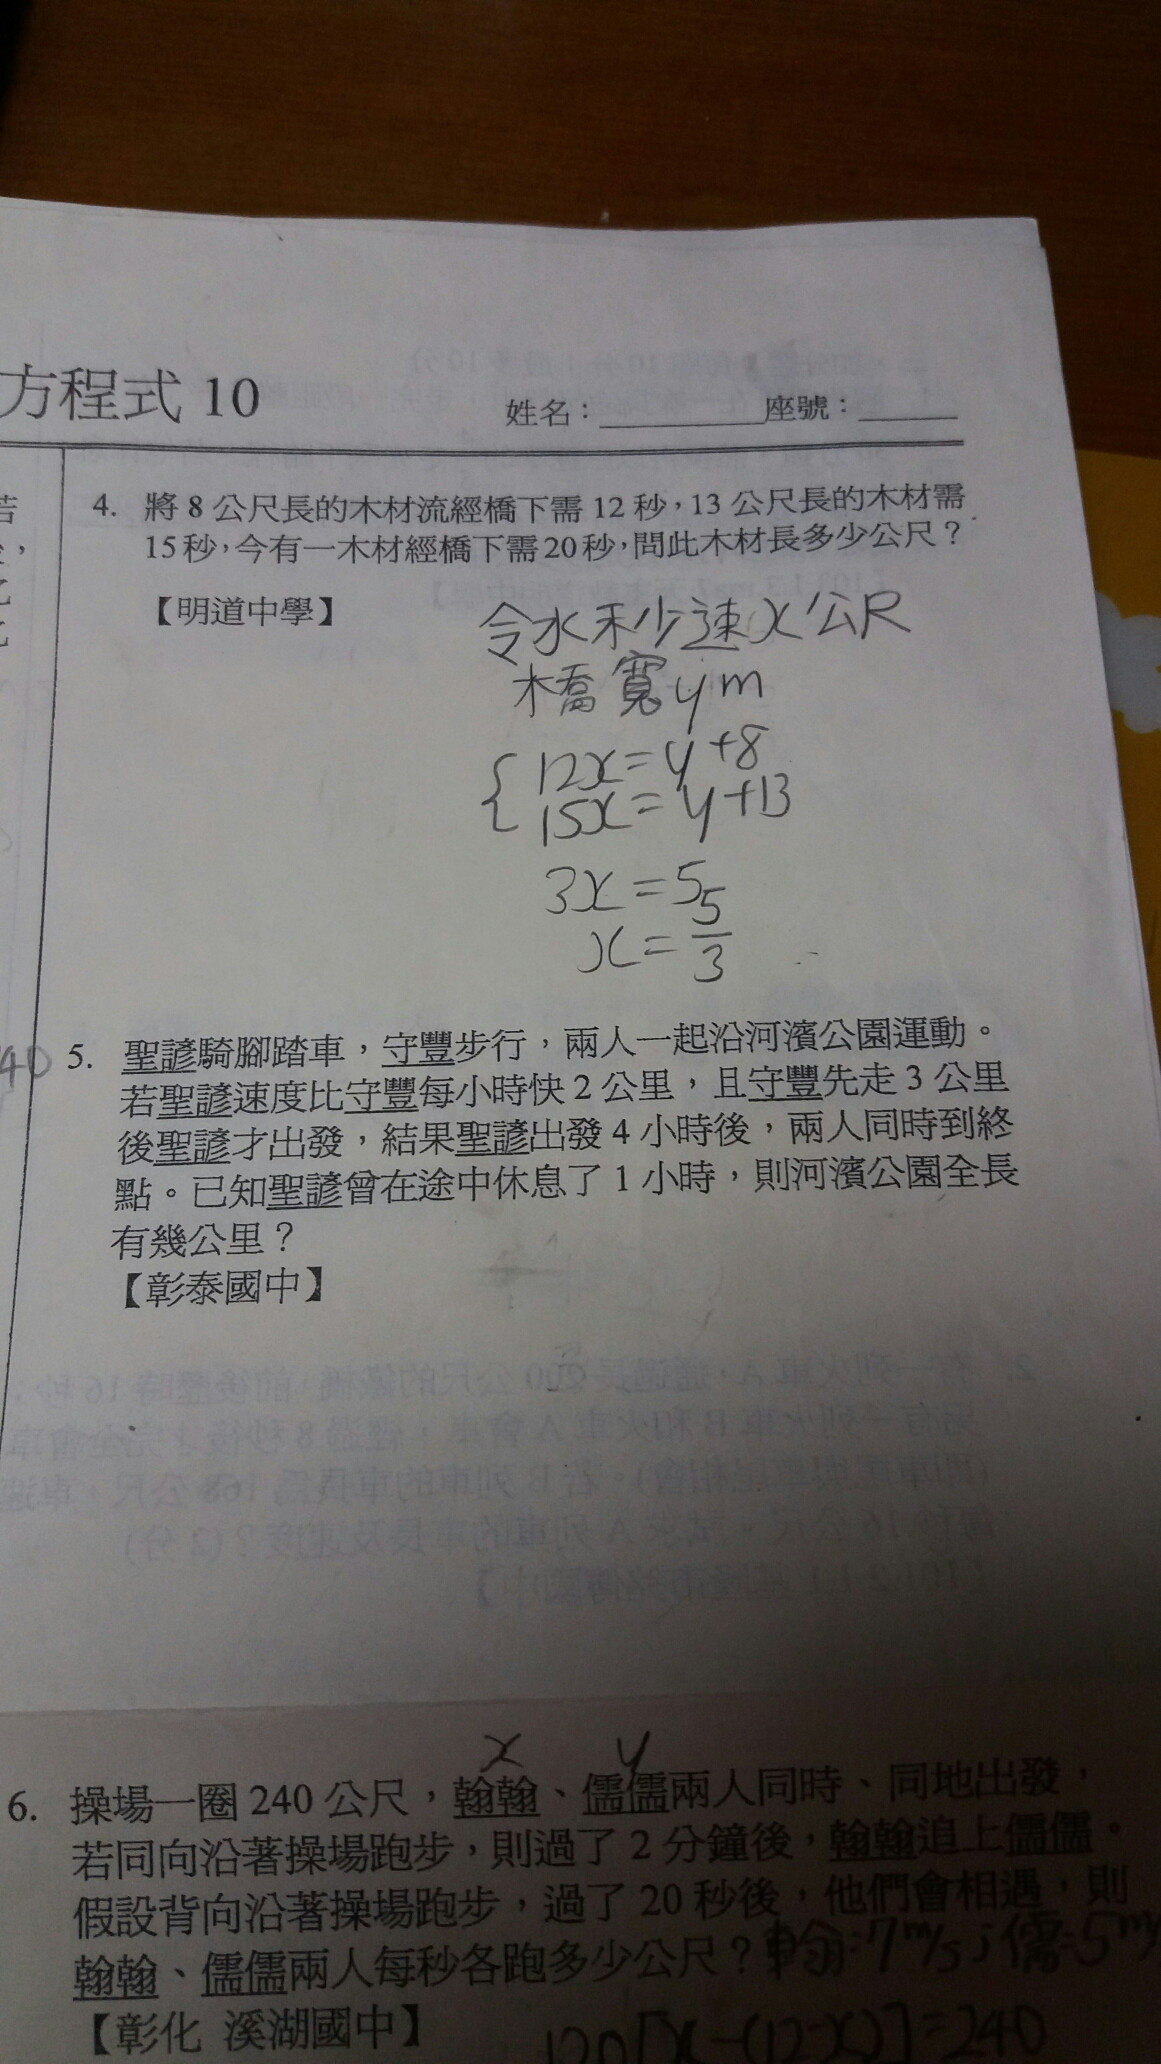 方程式 10
姓名：________座號：_____
4. 將 8 公尺長的木材流經橋下需 12 秒，13 公尺長的木材需
15 秒，今有一木材經橋下需 20 秒，問此木材長多少公尺？
【明道中學】
令水秒速x公尺
橋寬ym
12x=y+8
15x=y+13
3x=5
x=5/3
40
5. 聖諺騎腳踏車，守豐步行，兩人一起沿河濱公園運動。
若聖諺速度比守豐每小時快 2 公里，且守豐先走 3 公里
後聖諺才出發，結果聖諺出發 4 小時後，兩人同時到終
點。已知聖諺曾在途中休息了 1 小時，則河濱公園全長
有幾公里？
【彰泰國中】
x y
6. 操場一圈 240 公尺，翰翰、儒儒兩人同時、同地出發，
若同向沿著操場跑步，則過了 2 分鐘後，翰翰追上儒儒。
假設背向沿著操場跑步，過了 20 秒後，他們會相遇，則
翰翰、儒儒兩人每秒各跑多少公尺？翰:7m/s；儒:5m/
【彰化 溪湖國中】
120[x-(12-x)]=240